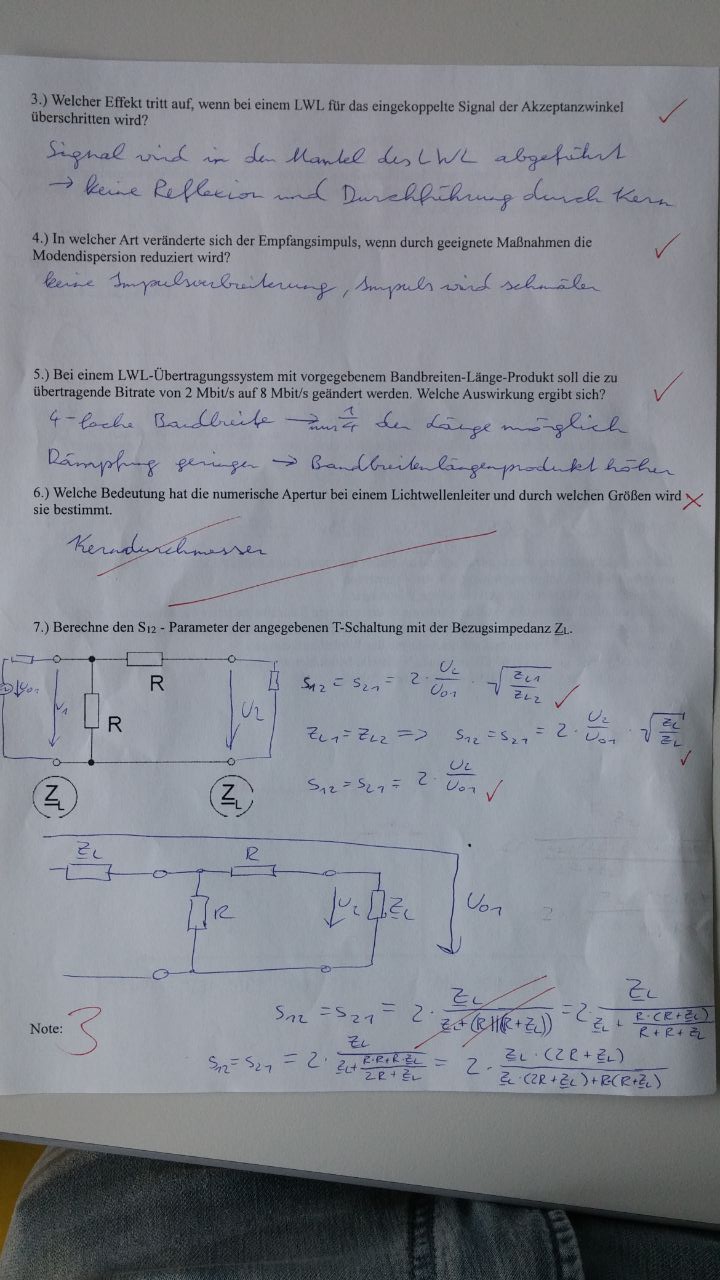 3.) Welcher Effekt tritt auf, wenn bei einem LWL für das eingekoppelte Signal der Akzeptanzwinkel
überschritten wird?
Signal wird in den Mantel des LWL abgeführt
→ keine Reflexion und Durchführung durch Kern
4.) In welcher Art veränderte sich der Empfangsimpuls, wenn durch geeignete Maßnahmen die
Modendispersion reduziert wird?
keine Impulsverbreiterung, Impuls wird schmäler
5.) Bei einem LWL-Übertragungssystem mit vorgegebenem Bandbreiten-Länge-Produkt soll die zu
übertragende Bitrate von 2 Mbit/s auf 8 Mbit/s geändert werden. Welche Auswirkung ergibt sich?
4-fache Bandbreite → nur 1/4 der Länge möglich
Dämpfung geringer → Bandbreitenlängenprodukt höher
6.) Welche Bedeutung hat die numerische Apertur bei einem Lichtwellenleiter und durch welchen Größen wird
sie bestimmt.
Kerndurchmesser
7.) Berechne den S12 - Parameter der angegebenen T-Schaltung mit der Bezugsimpedanz ZL.
U01 U1 R R U2
ZL ZL
S12 = S21 = 2 · U2/U01 · √(ZL1/ZL2)
ZL1 = ZL2 => S12 = S21 = 2 · U2/U01 · √(ZL/ZL)
S12 = S21 = 2 · U2/U01
ZL R R U2 ZL U01
S12 = S21 = 2 · ZL/(ZL+(R||(R+ZL))) = 2 ZL/(ZL + R·(R+ZL)/(R+R+ZL))
Note: 3
S12 = S21 = 2 · ZL/(ZL+(R·R+R·ZL)/(2R+ZL)) = 2 · ZL·(2R+ZL)/(ZL·(2R+ZL)+R·(R+ZL))